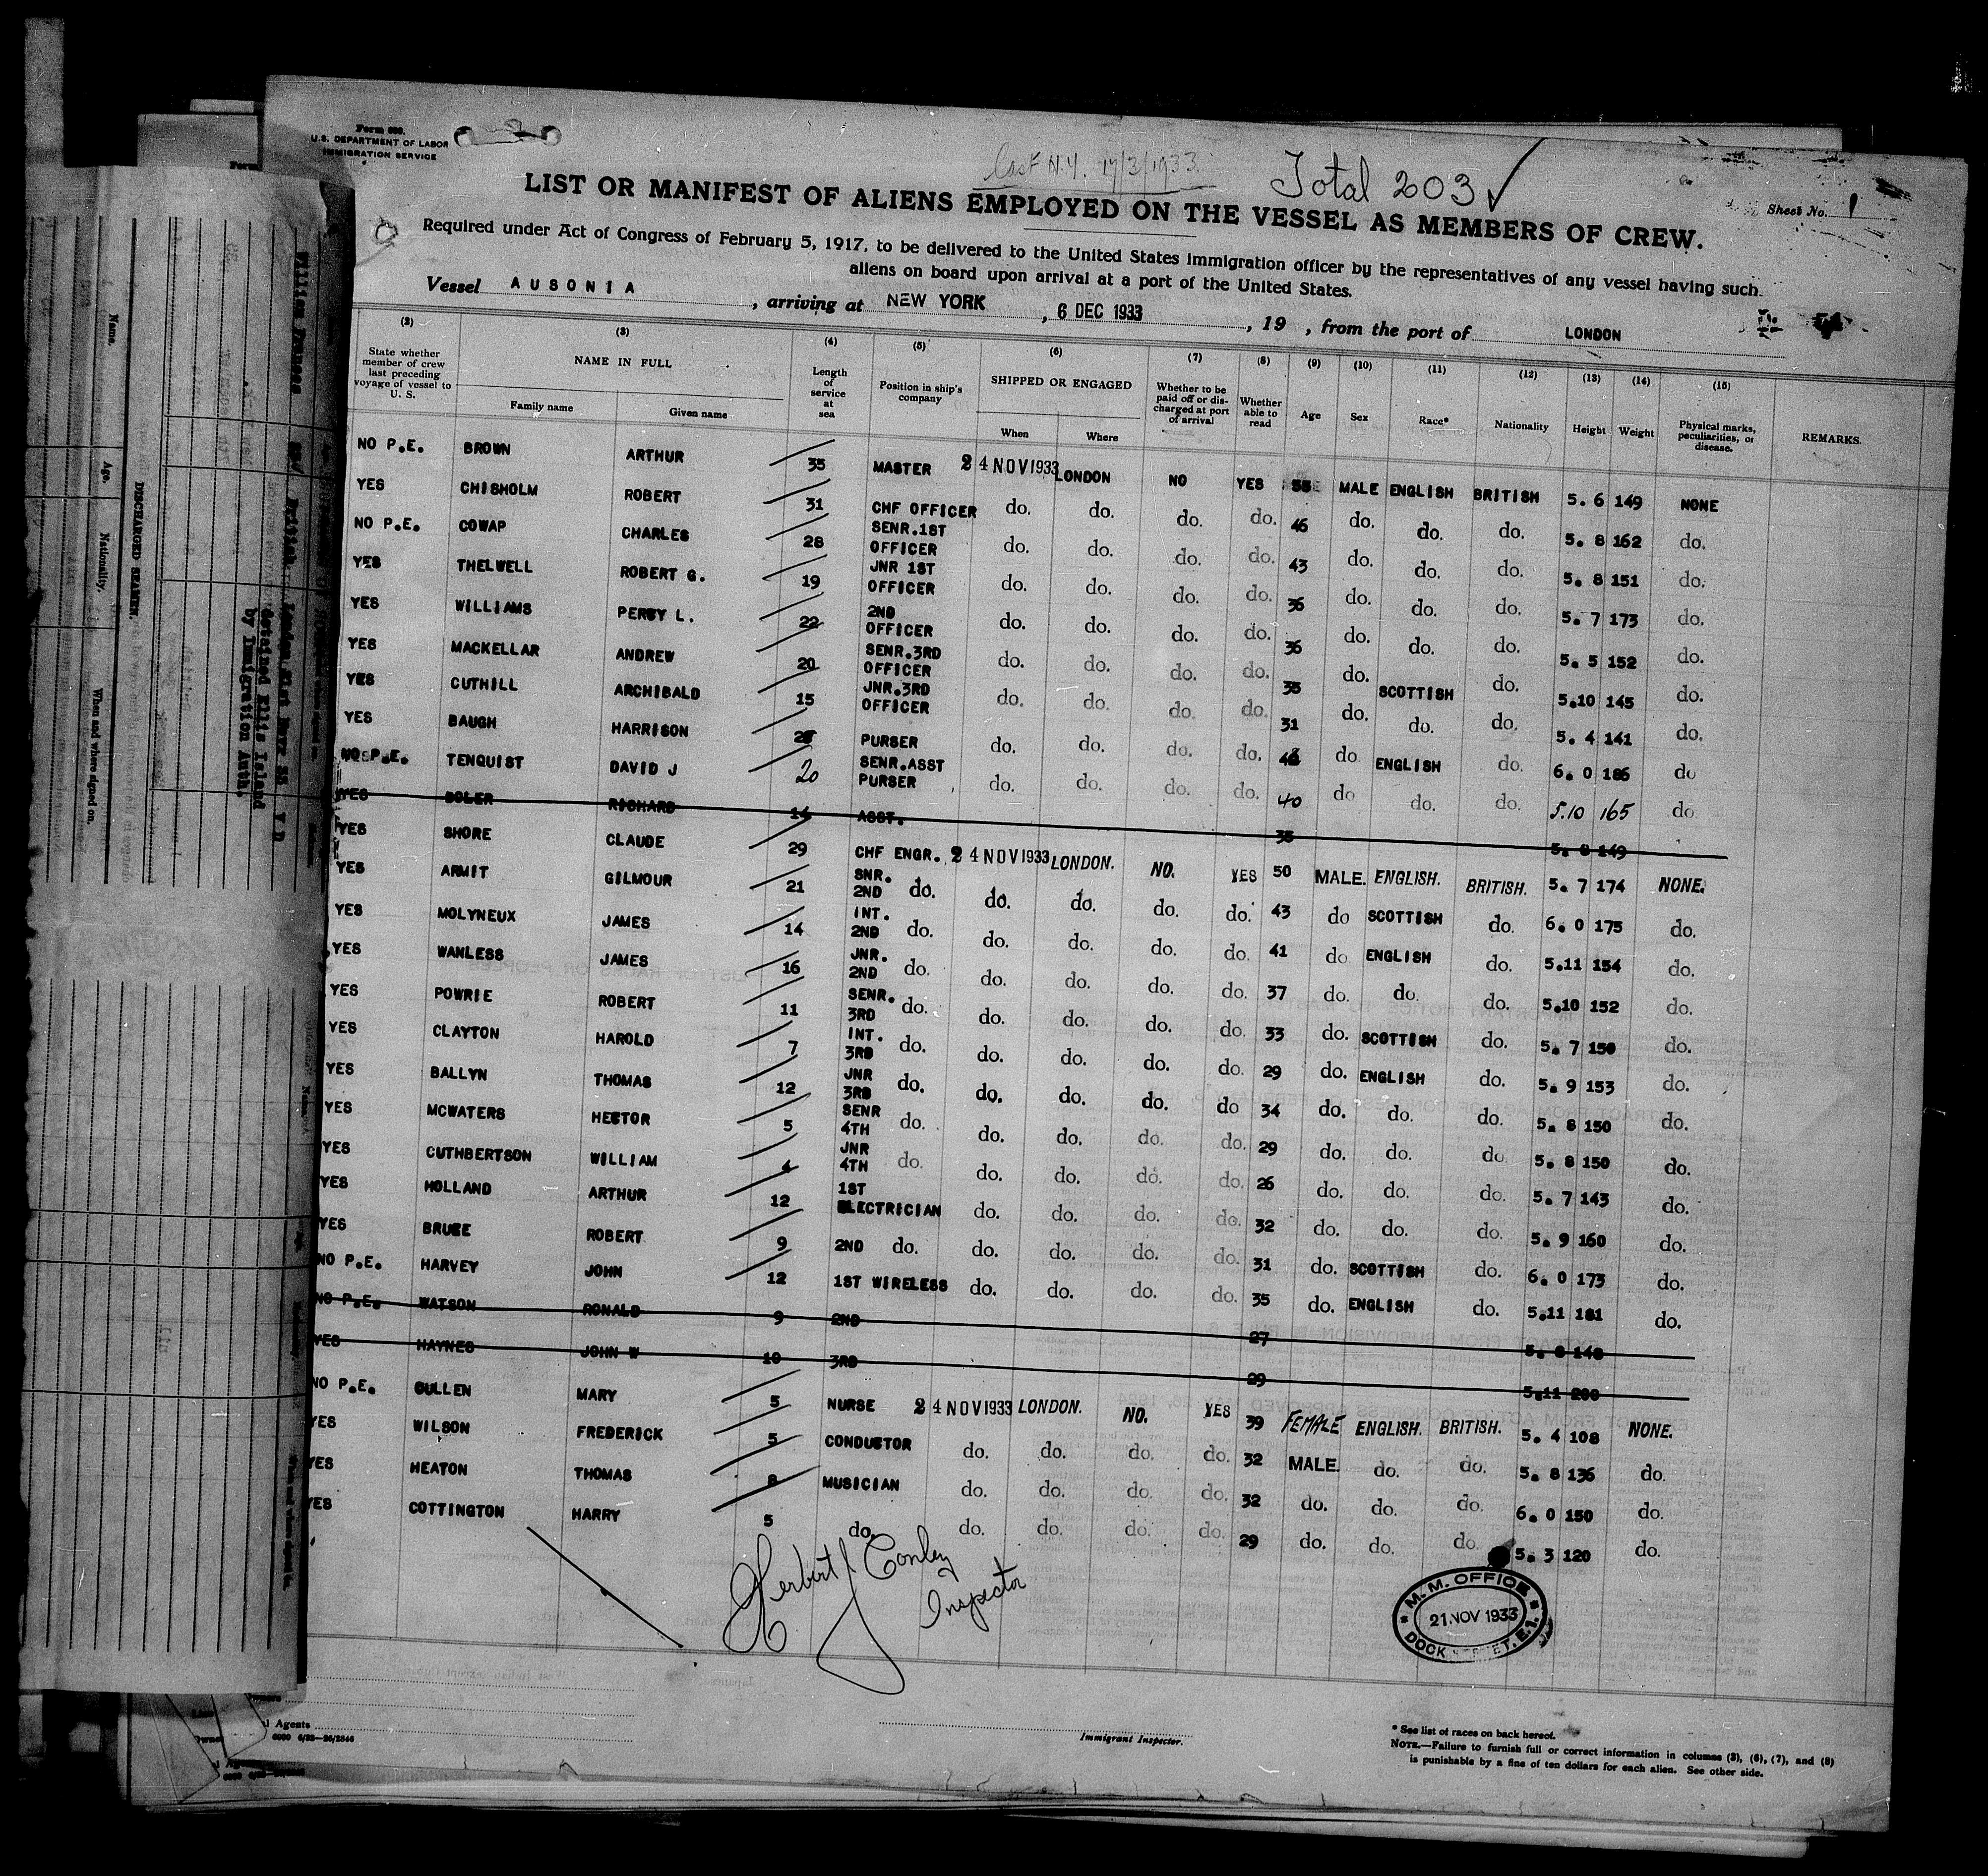 Form 680.
U.S. DEPARTMENT OF LABOR
IMMIGRATION SERVICE
Last N.Y. 17/3/1933.
Total 203 ✓
Sheet No. 1
LIST OR MANIFEST OF ALIENS EMPLOYED ON THE VESSEL AS MEMBERS OF CREW.
Required under Act of Congress of February 5, 1917, to be delivered to the United States immigration officer by the representatives of any vessel having such
aliens on board upon arrival at a port of the United States.
Vessel AUSONIA, arriving at NEW YORK, 6 DEC 1933, 19 , from the port of LONDON
(2) (3) (4) (5) (6) (7) (8) (9) (10) (11) (12) (13) (14) (15)
State whether member of crew last preceding voyage of vessel to U. S. NAME IN FULL Family name Given name Length of service at sea Position in ship's company SHIPPED OR ENGAGED When Where Whether to be paid off or discharged at port of arrival Whether able to read Age Sex Race* Nationality Height Weight Physical marks, peculiarities, or disease. REMARKS.
NO P.E. BROWN ARTHUR 35 MASTER 24 NOV 1933 LONDON NO YES MALE ENGLISH BRITISH 5. 6 149 NONE
YES CHISHOLM ROBERT 31 CHF OFFICER do. do. do. do. 46 do. do. do. 5. 8 162 do.
NO P.E. COWAP CHARLES 28 SENR.1ST OFFICER do. do. do. do. 43 do. do. do. 5. 8 151 do.
YES THELWELL ROBERT G. 19 JNR 1ST OFFICER do. do. do. do. 36 do. do. do. 5. 7 173 do.
YES WILLIAMS PERCY L. 22 2ND OFFICER do. do. do. do. 36 do. do. do. 5. 5 152 do.
YES MACKELLAR ANDREW 20 SENR.3RD OFFICER do. do. do. do. 35 do. SCOTTISH do. 5.10 145 do.
YES CUTHILL ARCHIBALD 15 JNR.3RD OFFICER do. do. do. do. 31 do. do. do. 5. 4 141 do.
YES BAUGH HARRISON PURSER do. do. do. do. do ENGLISH do. 6. 0 186 do
NO P.E. TENQUIST DAVID J 20 SENR.ASST PURSER do. do. do. do. 40 do do. do. 5.10 165 do.
YES BOLER RICHARD 14 ASST. 35 5. 8 149
YES SHORE CLAUDE 29 CHF ENGR. 24 NOV 1933 LONDON. NO. YES 50 MALE. ENGLISH. BRITISH. 5. 7 174 NONE.
YES ARMIT GILMOUR 21 SNR. 2ND do. do. do. do. do. 43 do SCOTTISH do. 6. 0 175 do.
YES MOLYNEUX JAMES 14 INT. 2ND do. do. do. do. do. 41 do ENGLISH do. 5.11 154 do.
YES WANLESS JAMES 16 JNR. 2ND do. do. do. do. do. 37 do. do. do. 5.10 152 do.
YES POWRIE ROBERT 11 SENR. 3RD do. do. do. do. do. 33 do. SCOTTISH do. 5. 7 150 do.
YES CLAYTON HAROLD 7 INT. 3RD do. do. do. do. do. 29 do. ENGLISH do. 5. 9 153 do.
YES BALLYN THOMAS 12 JNR 3RD do. do. do. do. do 34 do. do. do. 5. 8 150 do.
YES MCWATERS HECTOR 5 SENR 4TH do. do. do. do. do. 29 do. do. do. 5. 8 150 do.
YES CUTHBERTSON WILLIAM 4 JNR 4TH do. do. do. do. do. 26 do. do. do. 5. 7 143 do.
YES HOLLAND ARTHUR 12 1ST ELECTRICIAN do. do. do. do. 32 do. do. do. 5. 9 160 do.
YES BRUCE ROBERT 9 2ND do. do. do. do. do. 31 do. SCOTTISH do. 6. 0 173 do.
NO P.E. HARVEY JOHN 12 1ST WIRELESS do. do. do. do. 35 do. ENGLISH do. 5.11 181 do.
NO P.E. WATSON RONALD 9 2ND 27 5. 8 148
YES HAYNES JOHN W 10 3RD 29 5.11 200
NO P.E. CULLEN MARY 5 NURSE 24 NOV 1933 LONDON. NO. YES 39 FEMALE ENGLISH. BRITISH. 5. 4 108 NONE.
YES WILSON FREDERICK 5 CONDUCTOR do. do. do. do. 32 MALE. do. do. 5. 8 136 do.
YES HEATON THOMAS 8 MUSICIAN do. do. do. do. 32 do. do. do. 6. 0 150 do.
YES COTTINGTON HARRY 5 do. do. do. do. do. 29 do. do. do. 5. 3 120 do.
Herbert J Conley
Inspector
M. M. OFFICE
21 NOV 1933
DOCK STREET, E.1.
Immigrant Inspector.
* See list of races on back hereof.
NOTE.—Failure to furnish full or correct information in columns (3), (6), (7), and (8)
is punishable by a fine of ten dollars for each alien. See other side.
l Agents
Owne
DISCHARGED SEAMEN.
Name.
Age.
Nationality.
When and where signed on.
detained Ellis Island
by Immigration Auth.